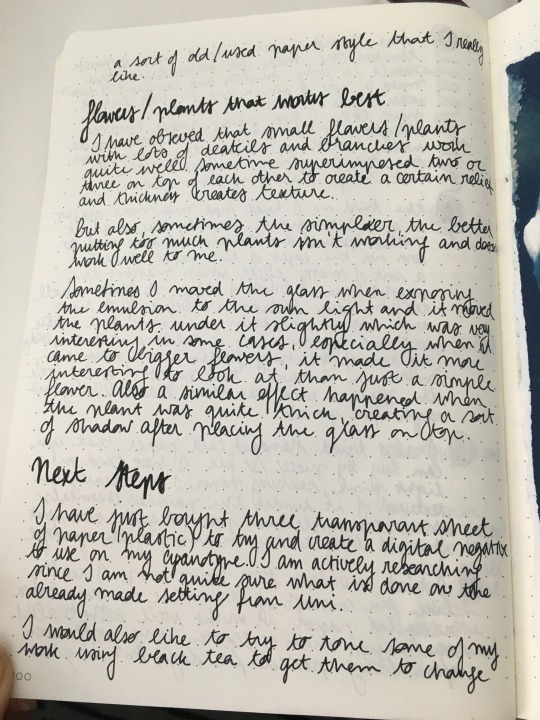 a sort of old/used paper style that I really
like.
flowers/plants that works best
I have observed that small flowers/plants
with lots of deatcils and branches work
quite well, sometime superimposed two or
three on top of each other to create a certain relief
and thickness creates texture.
but also, sometimes the simplier, the better
putting too much plants isn't working and does
work well to me.
Sometimes I moved the glass when exposing
the emulsion to the sun light and it moved
the plants under it slightly which was very
interesting in some cases, especially when it
came to bigger flowers, it made it more
interesting to look at than just a simple
flower. Also a similar effect happened when
the plant was quite thick creating a sort
of shadow after placing the glass on top.
Next Steps
I have just bought three transparant sheet
of paper (plastic) to try and create a digital negative
to use on my cyanotype. I am actively researching
since I am not quite sure what is done on the
already made setting from uni.
I would also like to try to tone some of my
work using black tea to get them to change